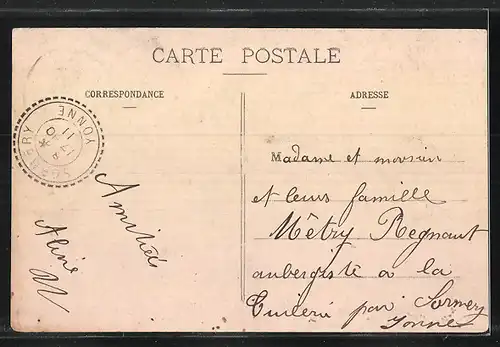 CARTE POSTALE
CORRESPONDANCE
ADRESSE
SORMERY
YONNE
17-4
11
Amitié
Aline
Madame et monsieur
et leurs famille
Mêtry Regnaut
aubergiste a la
Tuileri par Sormery
Yonne